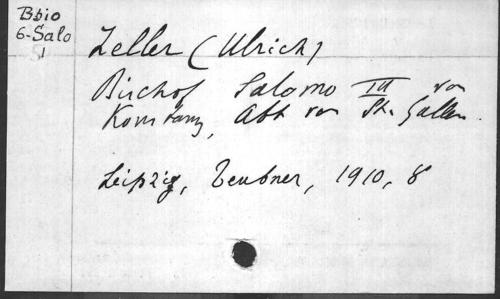 Bbio
6-Salo
1
Zeller (Ulrich)
Bischof Salomo III von
Konstanz, Abt von St. Gallen.
Leipzig, Teubner, 1910, 8